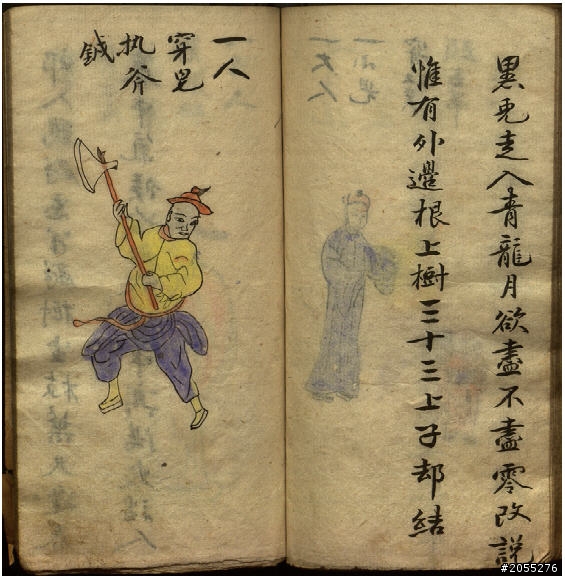 黑兎走入青龍月欲盡不盡零改説
惟有外邊根上樹三十三上子却結
一人
穿
执斧
鉞
#2055276